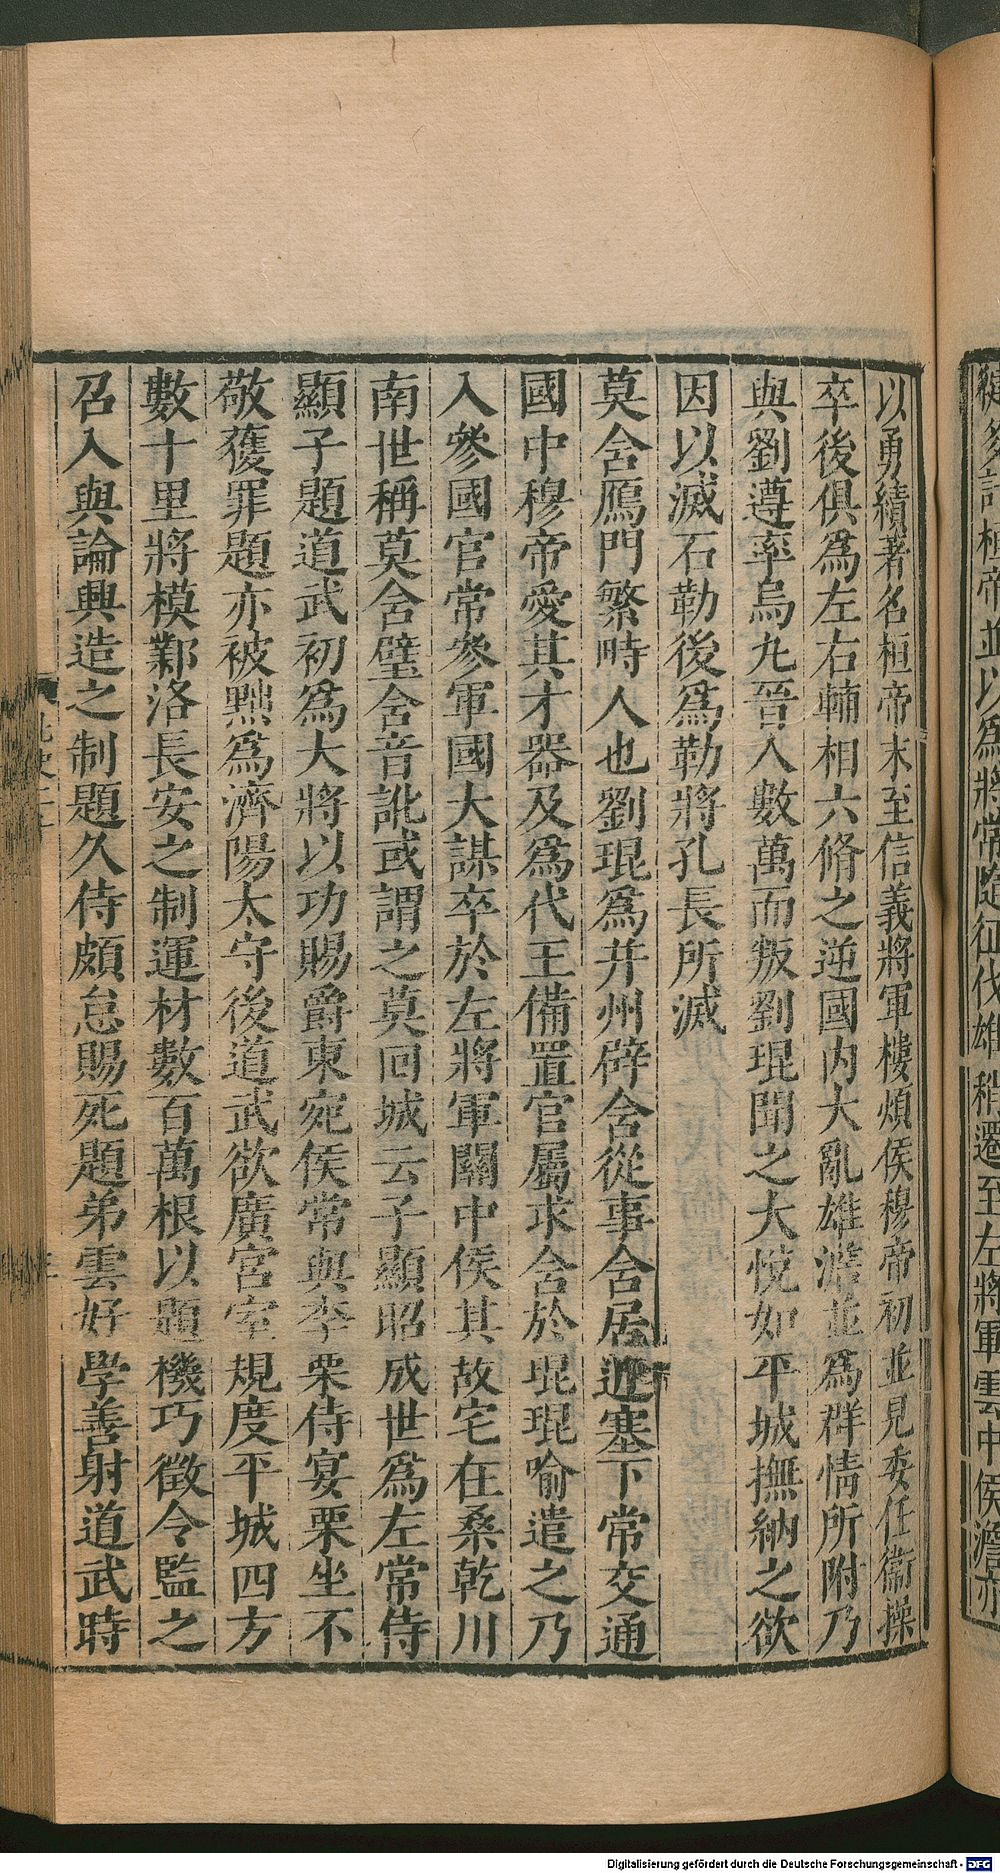 縱多計桓帝並以爲將常隨征伐雄稍遷至左將軍雲中侯澹亦
以勇績著名桓帝末至信義將軍樓煩侯穆帝初並見委任衞操
卒後俱爲左右輔相六脩之逆國內大亂雄澹並爲群情所附乃
與劉遵率烏九晉人數萬而叛劉琨聞之大悅如平城撫納之欲
因以滅石勒後爲勒將孔長所滅
莫含鴈門繁畤人也劉琨爲并州辟含從事含居近塞下常交通
國中穆帝愛其才器及爲代王備置官屬求含於琨琨喻遣之乃
入參國官常參軍國大謀卒於左將軍關中侯其故宅在桑乾川
南世稱莫含壁含音訛或謂之莫回城云子顯昭成世爲左常侍
顯子題道武初爲大將以功賜爵東宛侯常與李栗侍宴栗坐不
敬獲罪題亦被黜爲濟陽太守後道武欲廣宮室規度平城四方
數十里將模鄴洛長安之制運材數百萬根以題機巧徵令監之
召入與論興造之制題久侍頗怠賜死題弟雲好學善射道武時
Digitalisierung gefördert durch die Deutsche Forschungsgemeinschaft - DFG